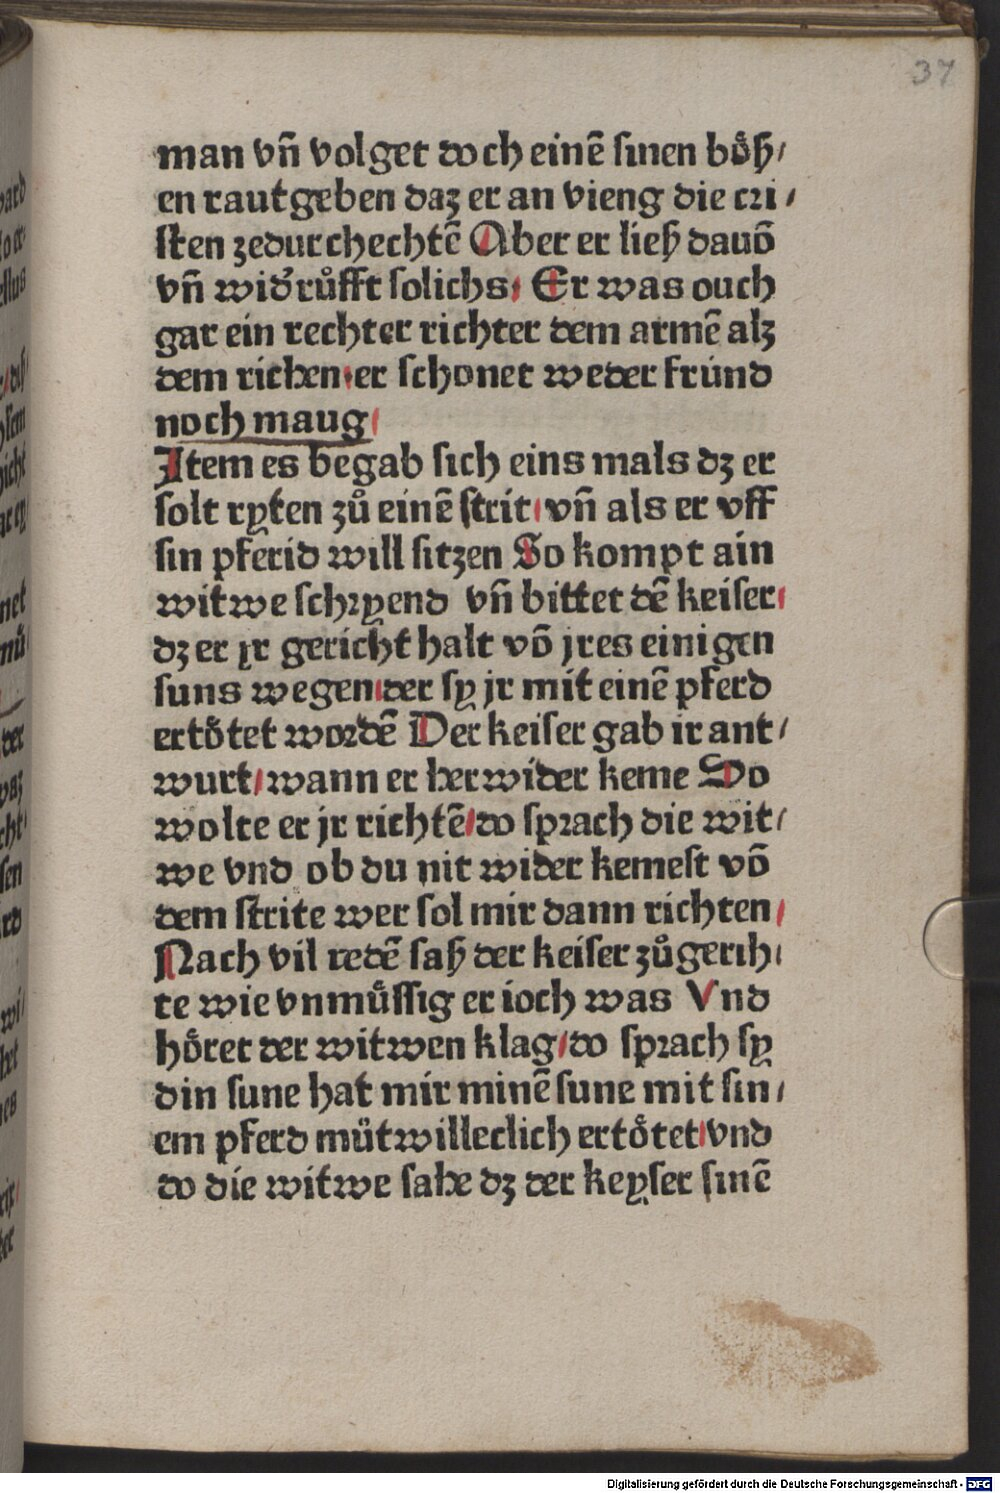 37
man vñ volget doch einē ſinen boͤß/
en rautgeben daz er an vieng die cri/
ſten zedurchechtē Aber er ließ dauō
vñ wid̾ruͦfft ſolichs Er was ouch
gar ein rechter richter dem armē alz
dem richen er ſchonet weder fründ
noch maug/
Item es begab ſich eins mals dz er
ſolt ryten zuͦ einē ſtrit/ vñ als er vff
ſin pferid will ſitzen So kompt ain
witwe ſchryend vñ bittet dē keiſer/
dz er yr gericht halt vō jres einigen
ſuns wegen/der ſy jr mit einē pferd
ertoͤtet wordē Der keiſer gab ir ant/
wurt/wann er her wider keme So
wolte er jr richtē/do ſprach die wit/
we vnd ob du nit wider kemeſt vō
dem ſtrite wer ſol mir dann richten/
Nach vil redē ſaß der keiſer zuͦgerih/
te wie vnmuͤſſig er ioch was Vnd
hoͤret der witwen klag/do ſprach ſy
din ſune hat mir minē ſune mit ſin/
em pferd muͤtwilleclich ertoͤtet/vnd
do die witwe ſahe dz der keyſer ſinē
Digitalisierung gefördert durch die Deutsche Forschungsgemeinschaft - DFG